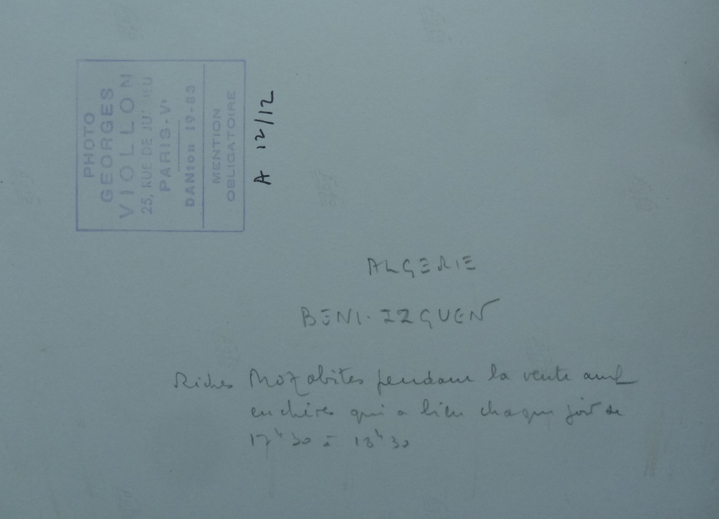 PHOTO
GEORGES
VIOLLON
25, RUE DE JU
PARIS-V°
DANton 19-83
MENTION
OBLIGATOIRE
A 12/12
ALGERIE
BENI-IZGUEN
Riches Mozabites pendant la vente aux
enchères qui a lieu chaque jour de
17h30 à 18h30